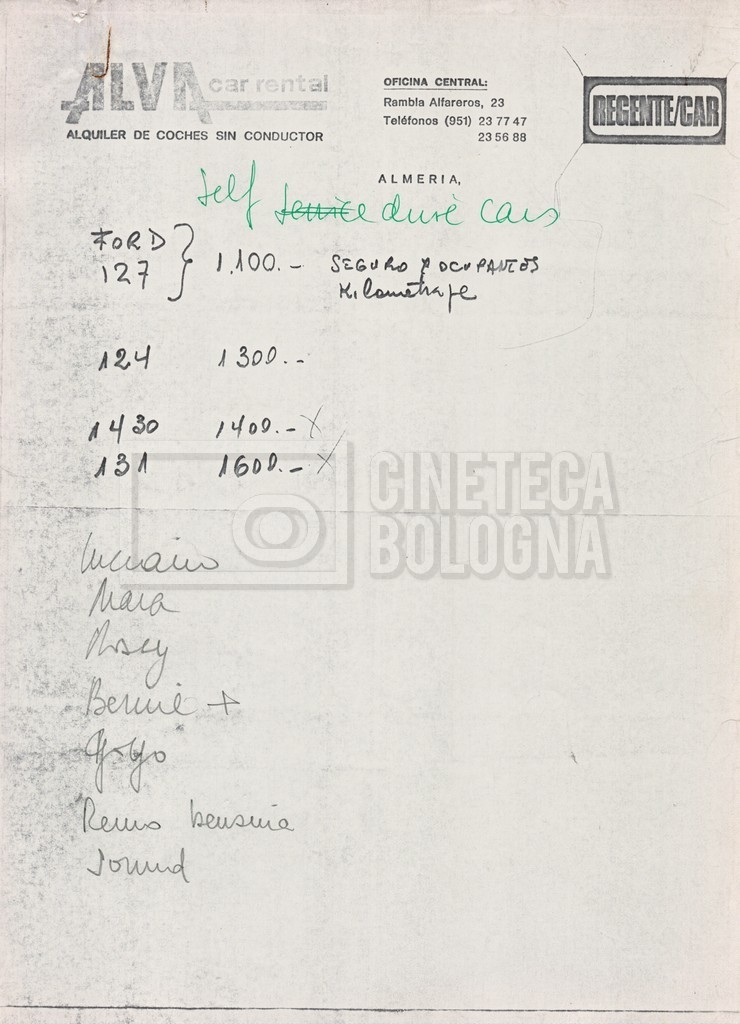 ALVA car rental
ALQUILER DE COCHES SIN CONDUCTOR
OFICINA CENTRAL:
Rambla Alfareros, 23
Teléfonos (951) 23 77 47
23 56 88
REGENTE/CAR
ALMERIA,
Self service drive cars
FORD
127 } 1.100.- SEGURO Y OCUPANTES
Kilometraje
124 1300.-
1430 1400.- X
131 1600.- X
CINETECA
BOLOGNA
Luciano
Mara
Bernie +
Yo-Yo
Remo
Sound